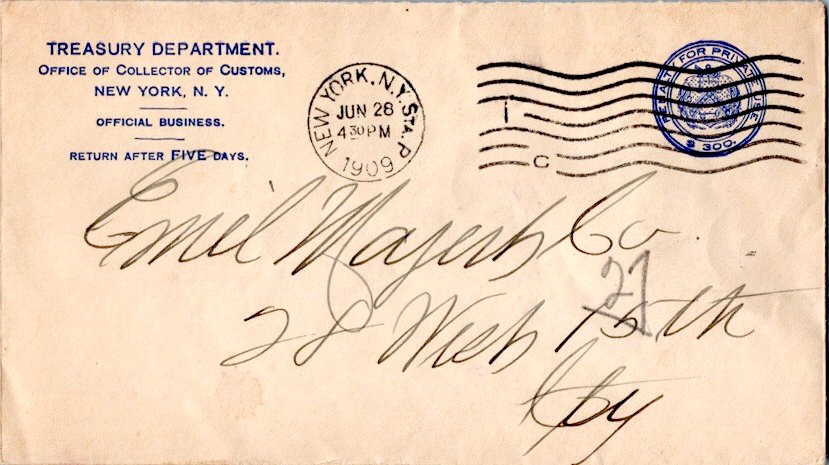 TREASURY DEPARTMENT.
OFFICE OF COLLECTOR OF CUSTOMS,
NEW YORK, N. Y.
OFFICIAL BUSINESS.
RETURN AFTER FIVE DAYS.
NEW YORK, N.Y. STA. P
JUN 28
4 30 PM
1909
I
C
PENALTY FOR PRIVATE USE
$ 300.
Emil Majert Co.
27
28 West 15th
City